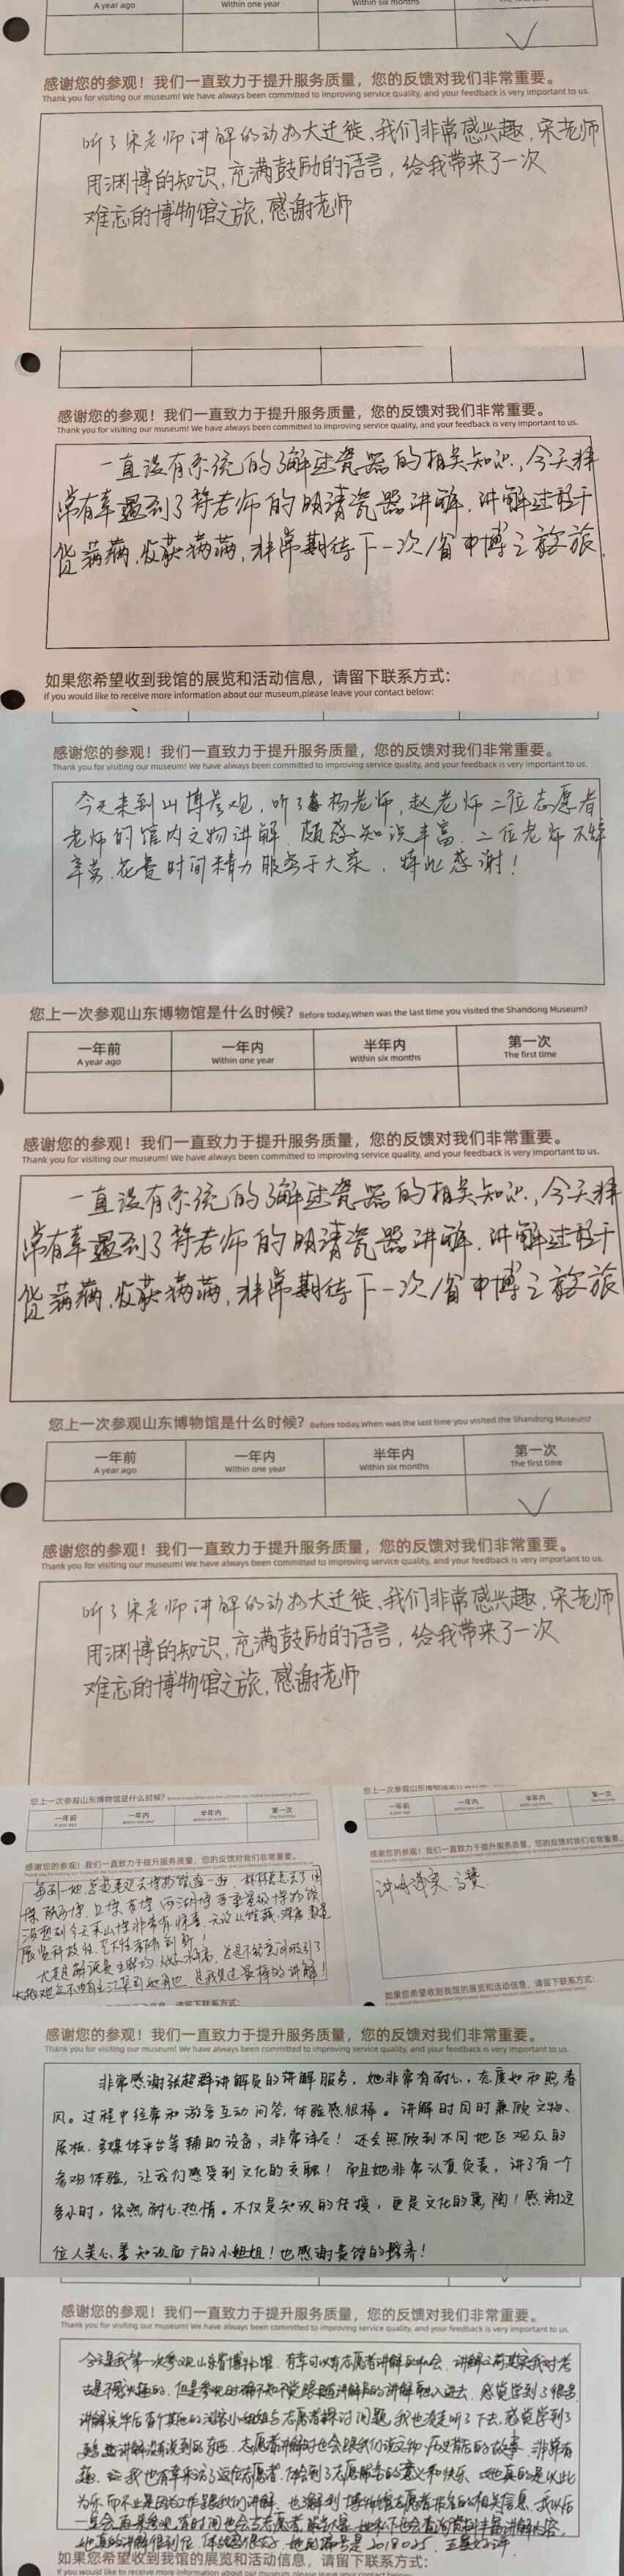 A year ago Within one year Within six months The first time
感谢您的参观！我们一直致力于提升服务质量，您的反馈对我们非常重要。
Thank you for visiting our museum! We have always been committed to improving service quality, and your feedback is very important to us.
听了宋老师讲解的动物大迁徙，我们非常感兴趣，宋老师
用渊博的知识，充满鼓励的语言，给我带来了一次
难忘的博物馆之旅，感谢老师
感谢您的参观！我们一直致力于提升服务质量，您的反馈对我们非常重要。
Thank you for visiting our museum! We have always been committed to improving service quality, and your feedback is very important to us.
一直没有系统的了解过瓷器的相关知识，今天非
常有幸遇到了符老师的明清瓷器讲解，讲解过程干
货满满，收获满满，非常期待下一次省博之旅
如果您希望收到我馆的展览和活动信息，请留下联系方式：
If you would like to receive more information about our museum,please leave your contact below:
感谢您的参观！我们一直致力于提升服务质量，您的反馈对我们非常重要。
Thank you for visiting our museum! We have always been committed to improving service quality, and your feedback is very important to us.
今天来到山博参观，听了杨老师，赵老师二位志愿者
老师的馆内文物讲解，颇感知识丰富，二位老师不辞
辛劳，花费时间精力服务于大家，特此感谢！
您上一次参观山东博物馆是什么时候？ Before today,When was the last time you visited the Shandong Museum?
一年前 一年内 半年内 第一次
A year ago Within one year Within six months The first time
感谢您的参观！我们一直致力于提升服务质量，您的反馈对我们非常重要。
Thank you for visiting our museum! We have always been committed to improving service quality, and your feedback is very important to us.
一直没有系统的了解过瓷器的相关知识，今天非
常有幸遇到了符老师的明清瓷器讲解，讲解过程干
货满满，收获满满，非常期待下一次省博之旅
您上一次参观山东博物馆是什么时候？ Before today,When was the last time you visited the Shandong Museum?
一年前 一年内 半年内 第一次
A year ago Within one year Within six months The first time
感谢您的参观！我们一直致力于提升服务质量，您的反馈对我们非常重要。
Thank you for visiting our museum! We have always been committed to improving service quality, and your feedback is very important to us.
听了宋老师讲解的动物大迁徙，我们非常感兴趣，宋老师
用渊博的知识，充满鼓励的语言，给我带来了一次
难忘的博物馆之旅，感谢老师
您上一次参观山东博物馆是什么时候？
一年前 一年内 半年内 第一次
感谢您的参观！我们一直致力于提升服务质量，您的反馈对我们非常重要。
每到一地，总是要观去博物馆逛一逛
没想到今天来山博非常有惊喜，无论从馆藏，深度
展览科技性，艺术性都有创新！
是我见过最棒的讲解！
您上一次参观山东博物馆是什么时候
一年前 一年内 半年内 第一次
感谢您的参观！我们一直致力于提升服务质量，您的反馈对我们非常重要。
讲解详实，点赞
如果您希望收到我馆的展览和活动信息，请留下联系方式：
感谢您的参观！我们一直致力于提升服务质量，您的反馈对我们非常重要。
Thank you for visiting our museum! We have always been committed to improving service quality, and your feedback is very important to us.
非常感谢张超群讲解员的讲解服务，她非常有耐心，态度如和煦春
风。过程中经常和游客互动问答，体验感很棒。讲解时同时兼顾文物、
展板、多媒体平台等辅助设备，非常详尽！还会照顾到不同地区观众的
参观体验，让我们感受到文化的交融！而且她非常认真负责，讲了有一个
多小时，依然耐心热情。不仅是知识的传授，更是文化的熏陶！感谢这
位人美心善知识面广的小姐姐！也感谢贵馆的培养！
感谢您的参观！我们一直致力于提升服务质量，您的反馈对我们非常重要。
Thank you for visiting our museum! We have always been committed to improving service quality, and your feedback is very important to us.
今天是我第一次参观山东省博物馆，有幸可以有志愿者讲解的机会，讲解之前其实我对考
古是不感兴趣的，但是参观时确不知不觉跟随讲解员的讲解融入进去，感觉学到了很多
讲解完毕后有个其他的游客小姐姐与志愿者探讨问题，我也凑近听了下去，感觉学到了
更多些讲解没有说到的东西，志愿者讲解时也会跟我们说文物、历史背后的故事，非常有
趣，我也有幸采访了这位志愿者，体会到了志愿服务的意义和快乐，她真的是以此
为乐而不止是因为工作跟我们讲解，也了解到博物馆志愿者报名的相关信息，我以后
一定会再来参观，有时间也会当志愿者服务大家，她私下也会查询资料丰富讲解内容，
她真的讲解很到位，体验感很好，她的编号是2018025，五星好评
如果您希望收到我馆的展览和活动信息，请留下联系方式：
If you would like to receive more information about our museum,please leave your contact below: